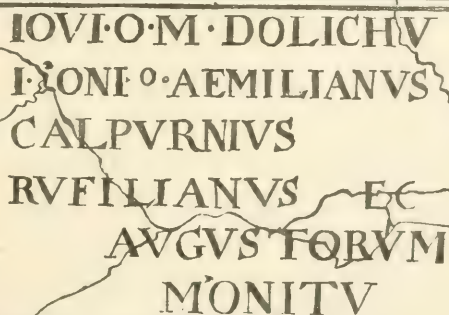 IOVI·O·M·DOLICHV
I·IONI·O·AEMILIANVS
CALPVRNIVS
RVFILIANVS EC
AVGVSTORVM
MONITV